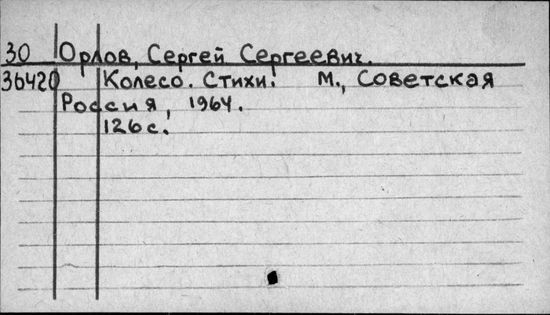 30 Орлов, Сергей Сергеевич.
36420 Колесо. Стихи. М., Советская
Россия, 1964.
126 с.